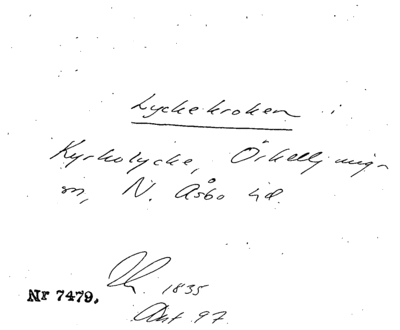 Lyckekroken i
Kyrkolycke, Örkelljunga
sn, N. Åsbo hd.
1835
Akt 97
Nr 7479.